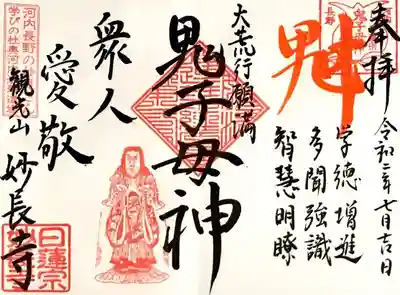 奉拝
令和三年七月吉日
魁
学徳増進
多聞強識
智慧明瞭
大荒行願満
鬼子母神
衆人
愛敬
河内長野の
学びの杜
観光山
妙長寺
日蓮宗